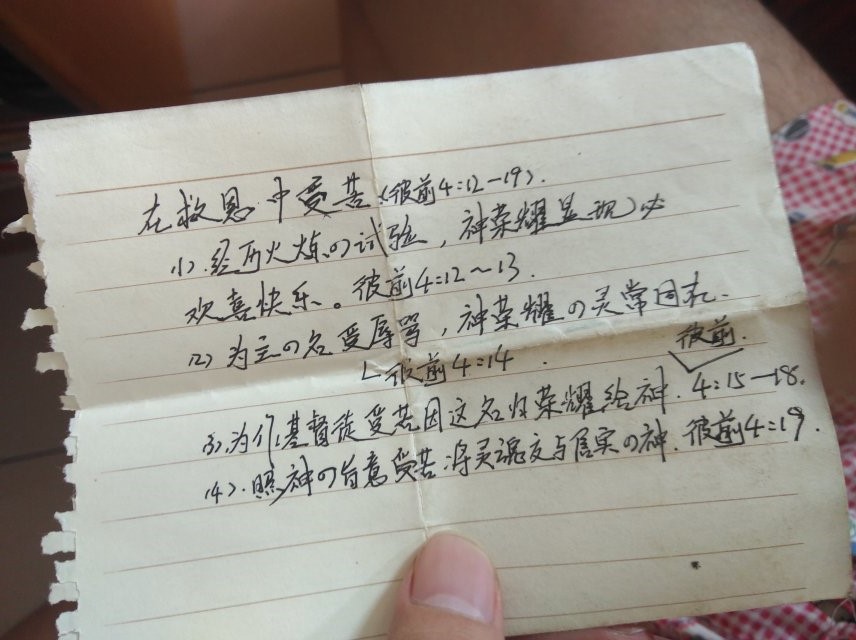 在救恩中受苦(彼前4:12-19).
(1).经历火煉の试验，神荣耀显现必
欢喜快乐。彼前4:12~13.
(2)为主の名受辱骂，神荣耀の灵常同在.
彼前4:14.
彼前.
(3).为作基督徒受苦因这名归荣耀给神.4:15-18.
(4).照神の旨意受苦将灵魂交与信实の神.彼前4:19.